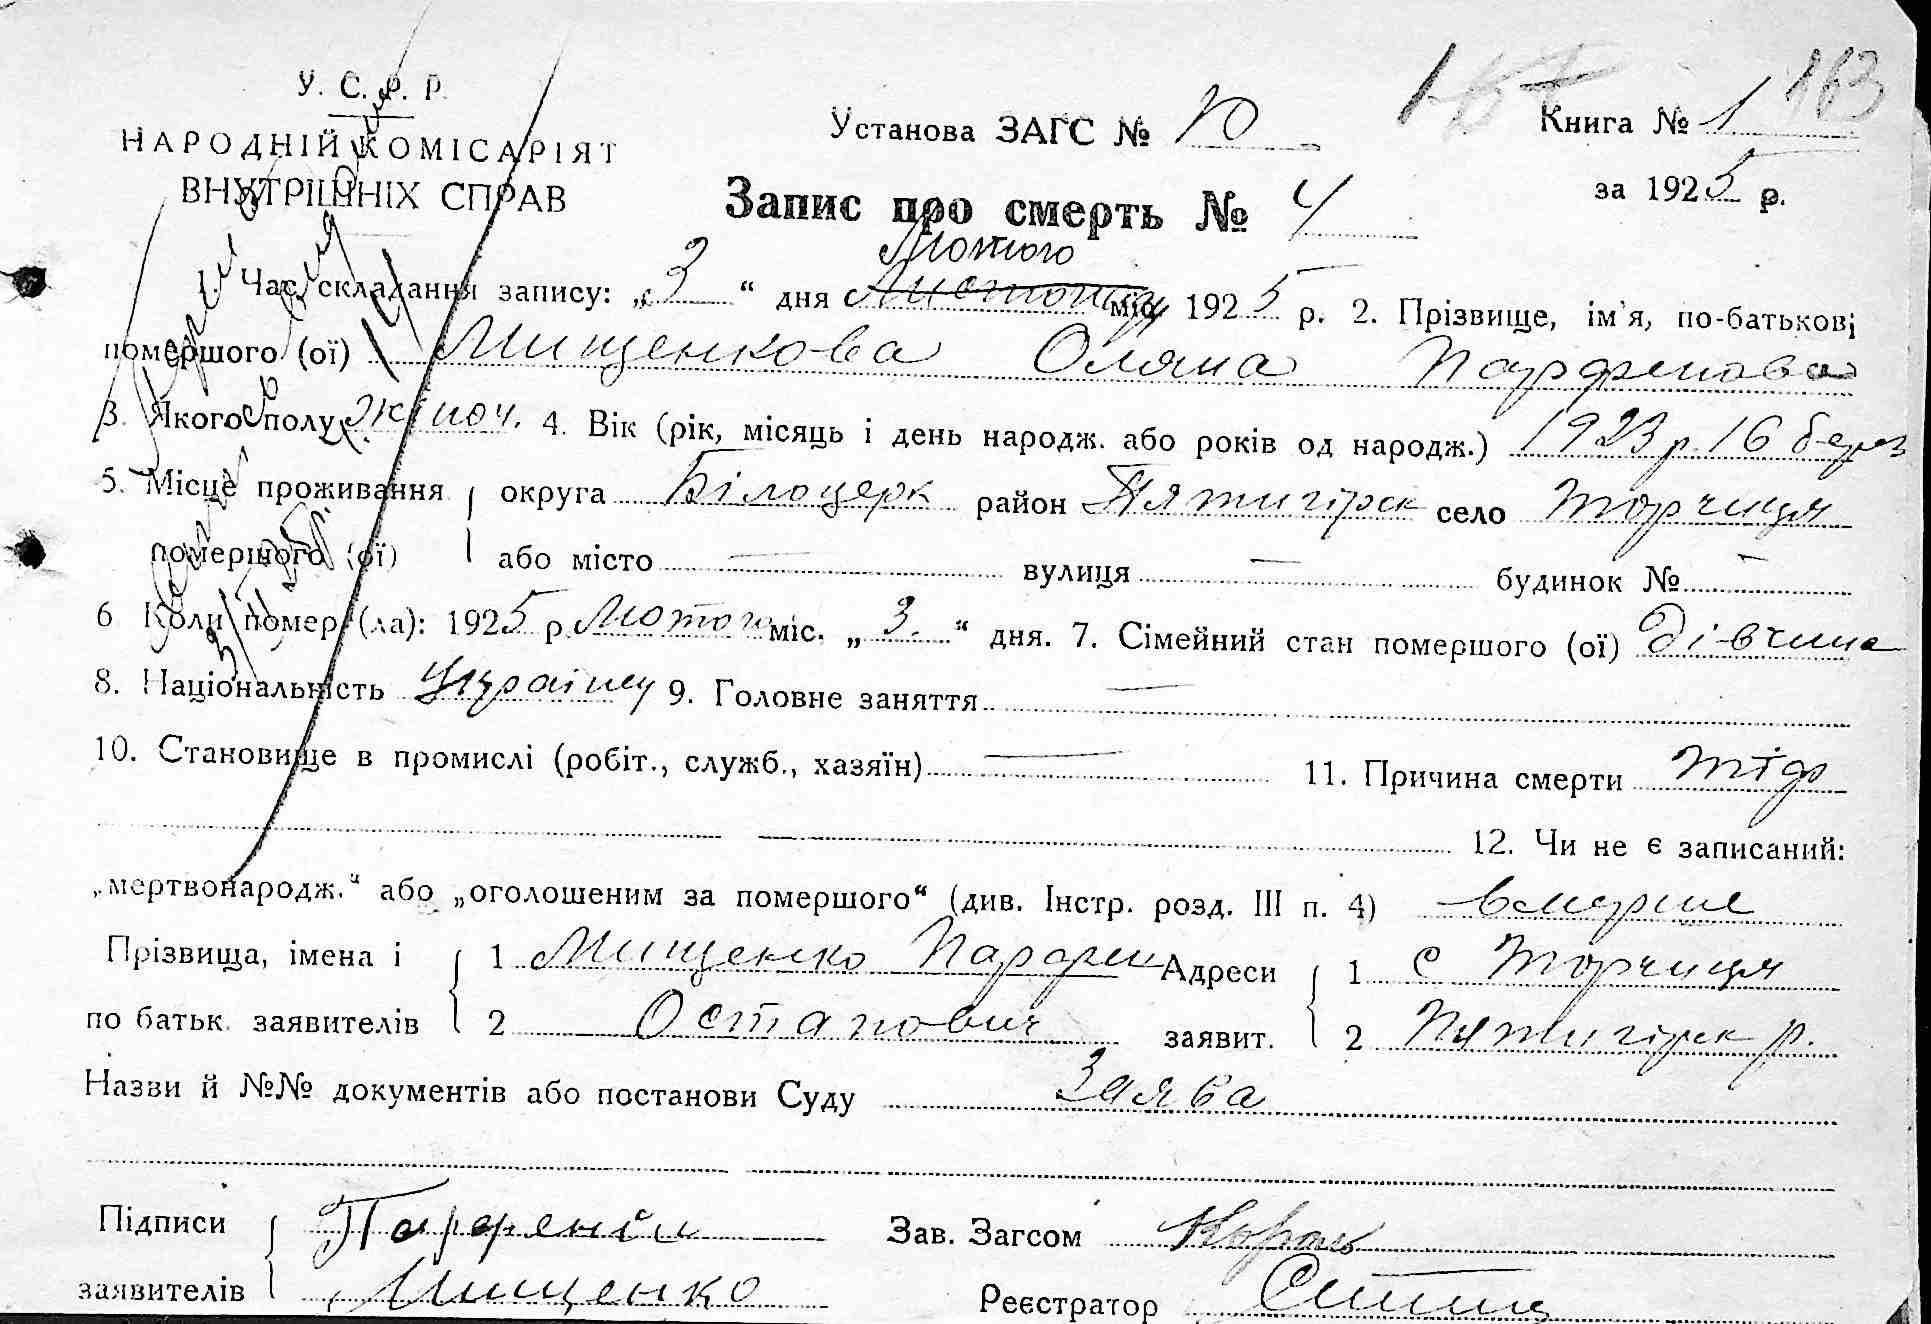 У. С. Р. Р.
НАРОДНІЙ КОМІСАРІЯТ
ВНУТРІШНІХ СПРАВ
Установа ЗАГС № 10
Книга № 1 163
за 1925 р.
Запис про смерть № 4
Лютого
1. Час складання запису: „ 3 “ дня міс. 1925 р. 2. Прізвище, ім'я, по-батькові
помершого (ої) Мищенкова Оляна Парфенова
3. Якого полу жіноч. 4. Вік (рік, місяць і день народж. або років од народж.) 1923 р. 16 берез
5. Місце проживання округа Білоцерк район Пятигірск село Торчиця
помершого (ої) або місто — вулиця — будинок № —
6 Коли помер (ла): 1925 р. Лютого міс. „ 3. “ дня. 7. Сімейний стан помершого (ої) дівчина
8. Національність Україну 9. Головне заняття —
10. Становище в промислі (робіт., служб., хазяїн) — 11. Причина смерти тіф
12. Чи не є записаний:
„мертвонародж.“ або „оголошеним за помершого“ (див. Інстр. розд. III п. 4) вмерше
Прізвища, імена і 1 Мищенко Парфен Адреси 1 с Торчиця
по батьк. заявителів 2 Остапович заявит. 2 Пятигірск р.
Назви й №№ документів або постанови Суду Заява
Підписи Парфений Зав. Загсом Король
заявителів Мищенко Реєстратор